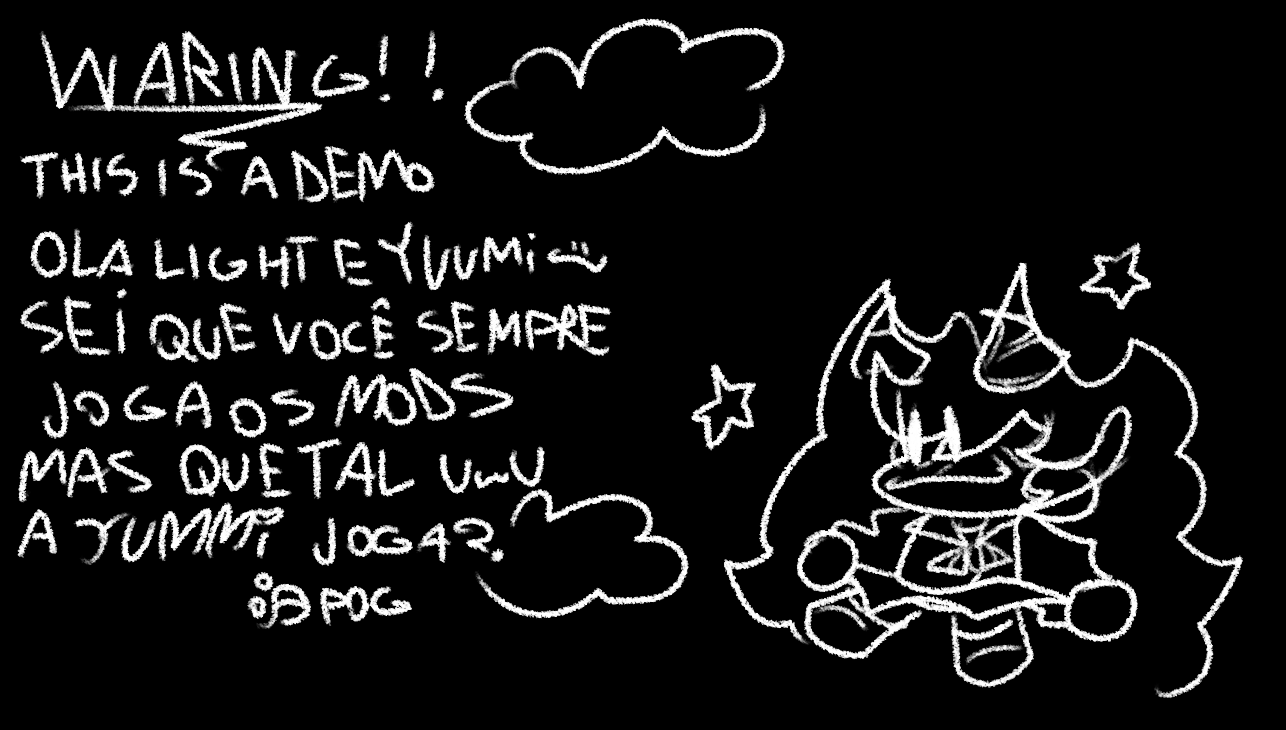 WARING!!
THIS IS A DEMO
OLA LIGHT E YUUMi
SEi QUE VOCÊ SEMPRE
JOGA OS MODS
MAS QUE TAL UwU
A YUMMi JOGAR.
POG